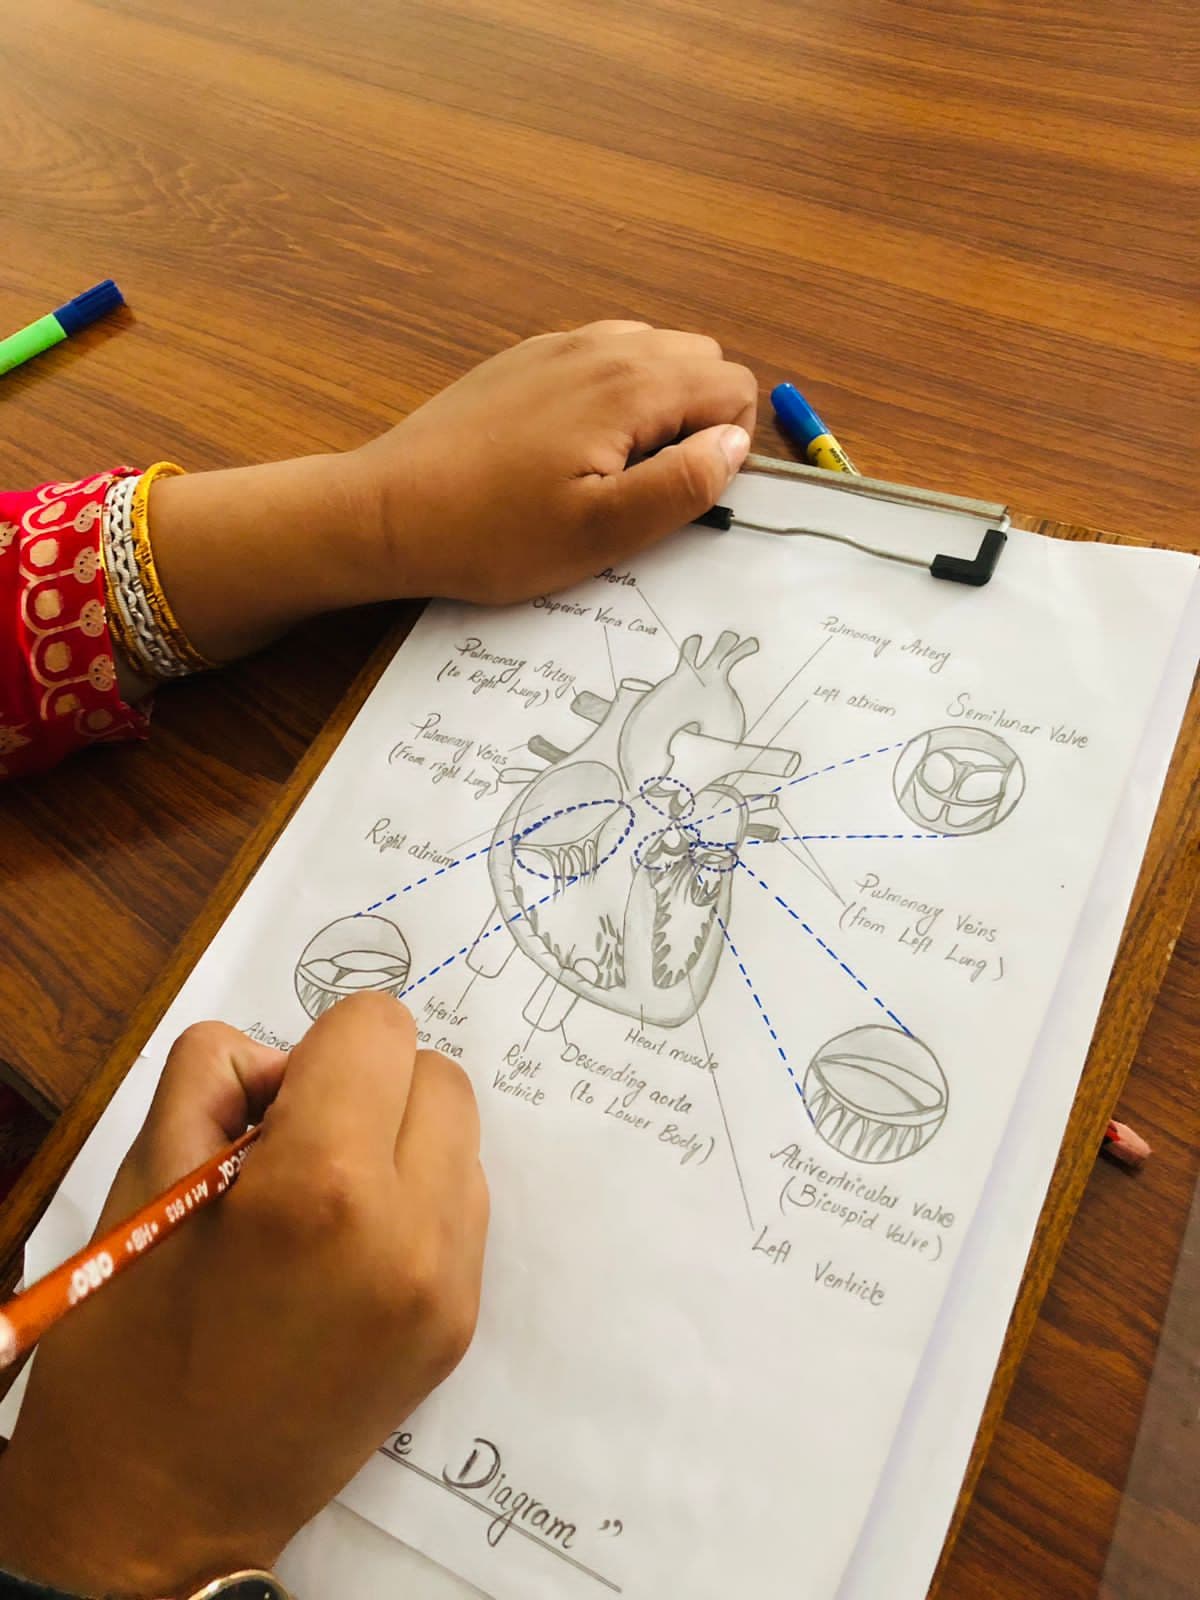 Aorta
Superior Vena Cava
Pulmonary Artery
(to Right Lung)
Pulmonary Veins
(From right Lung)
Right atrium
Pulmonary Artery
Left atrium
Semilunar Valve
Pulmonary Veins
(from Left Lung)
Inferior
Cava
Right
Ventricle
Descending aorta
(to Lower Body)
Heart muscle
Atriventricular valve
(Bicuspid Valve)
Left Ventricle
Diagram"
Art # 613 *HB* ORO